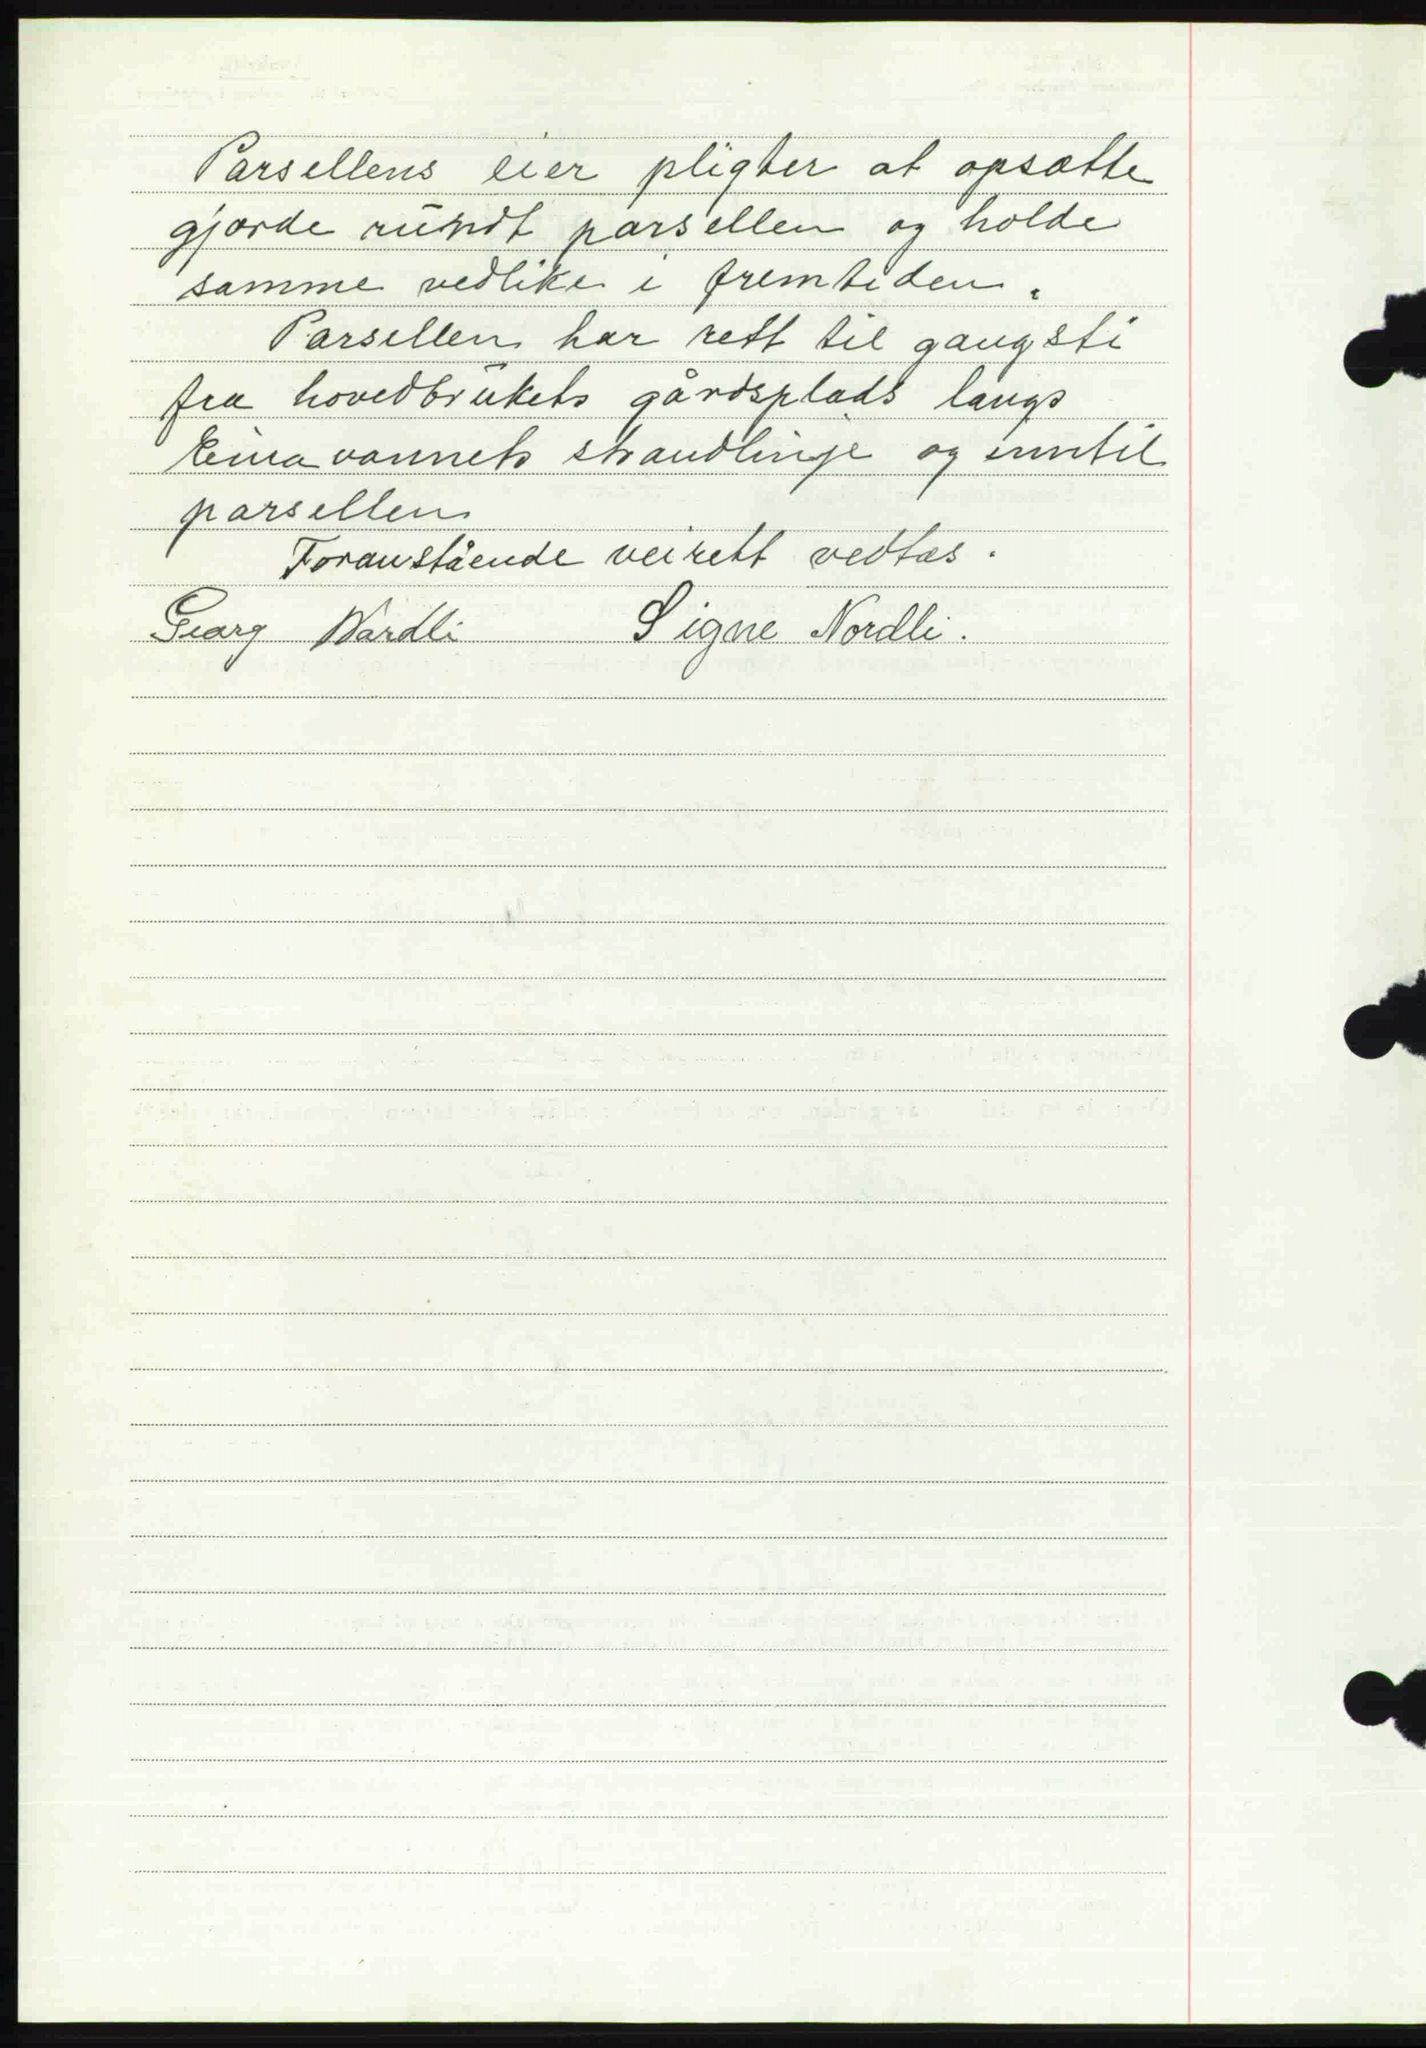 Parsellens eier pligter at opsætte
gjærde rundt parsellen og holde
samme vedlike i fremtiden.
Parsellen har rett til gangsti
fra hovedbrukets gårdsplads langs
Einavannets strandlinje og inntil
parsellen
Foranstående veirett vedtas.
Georg Nordli Signe Nordli.